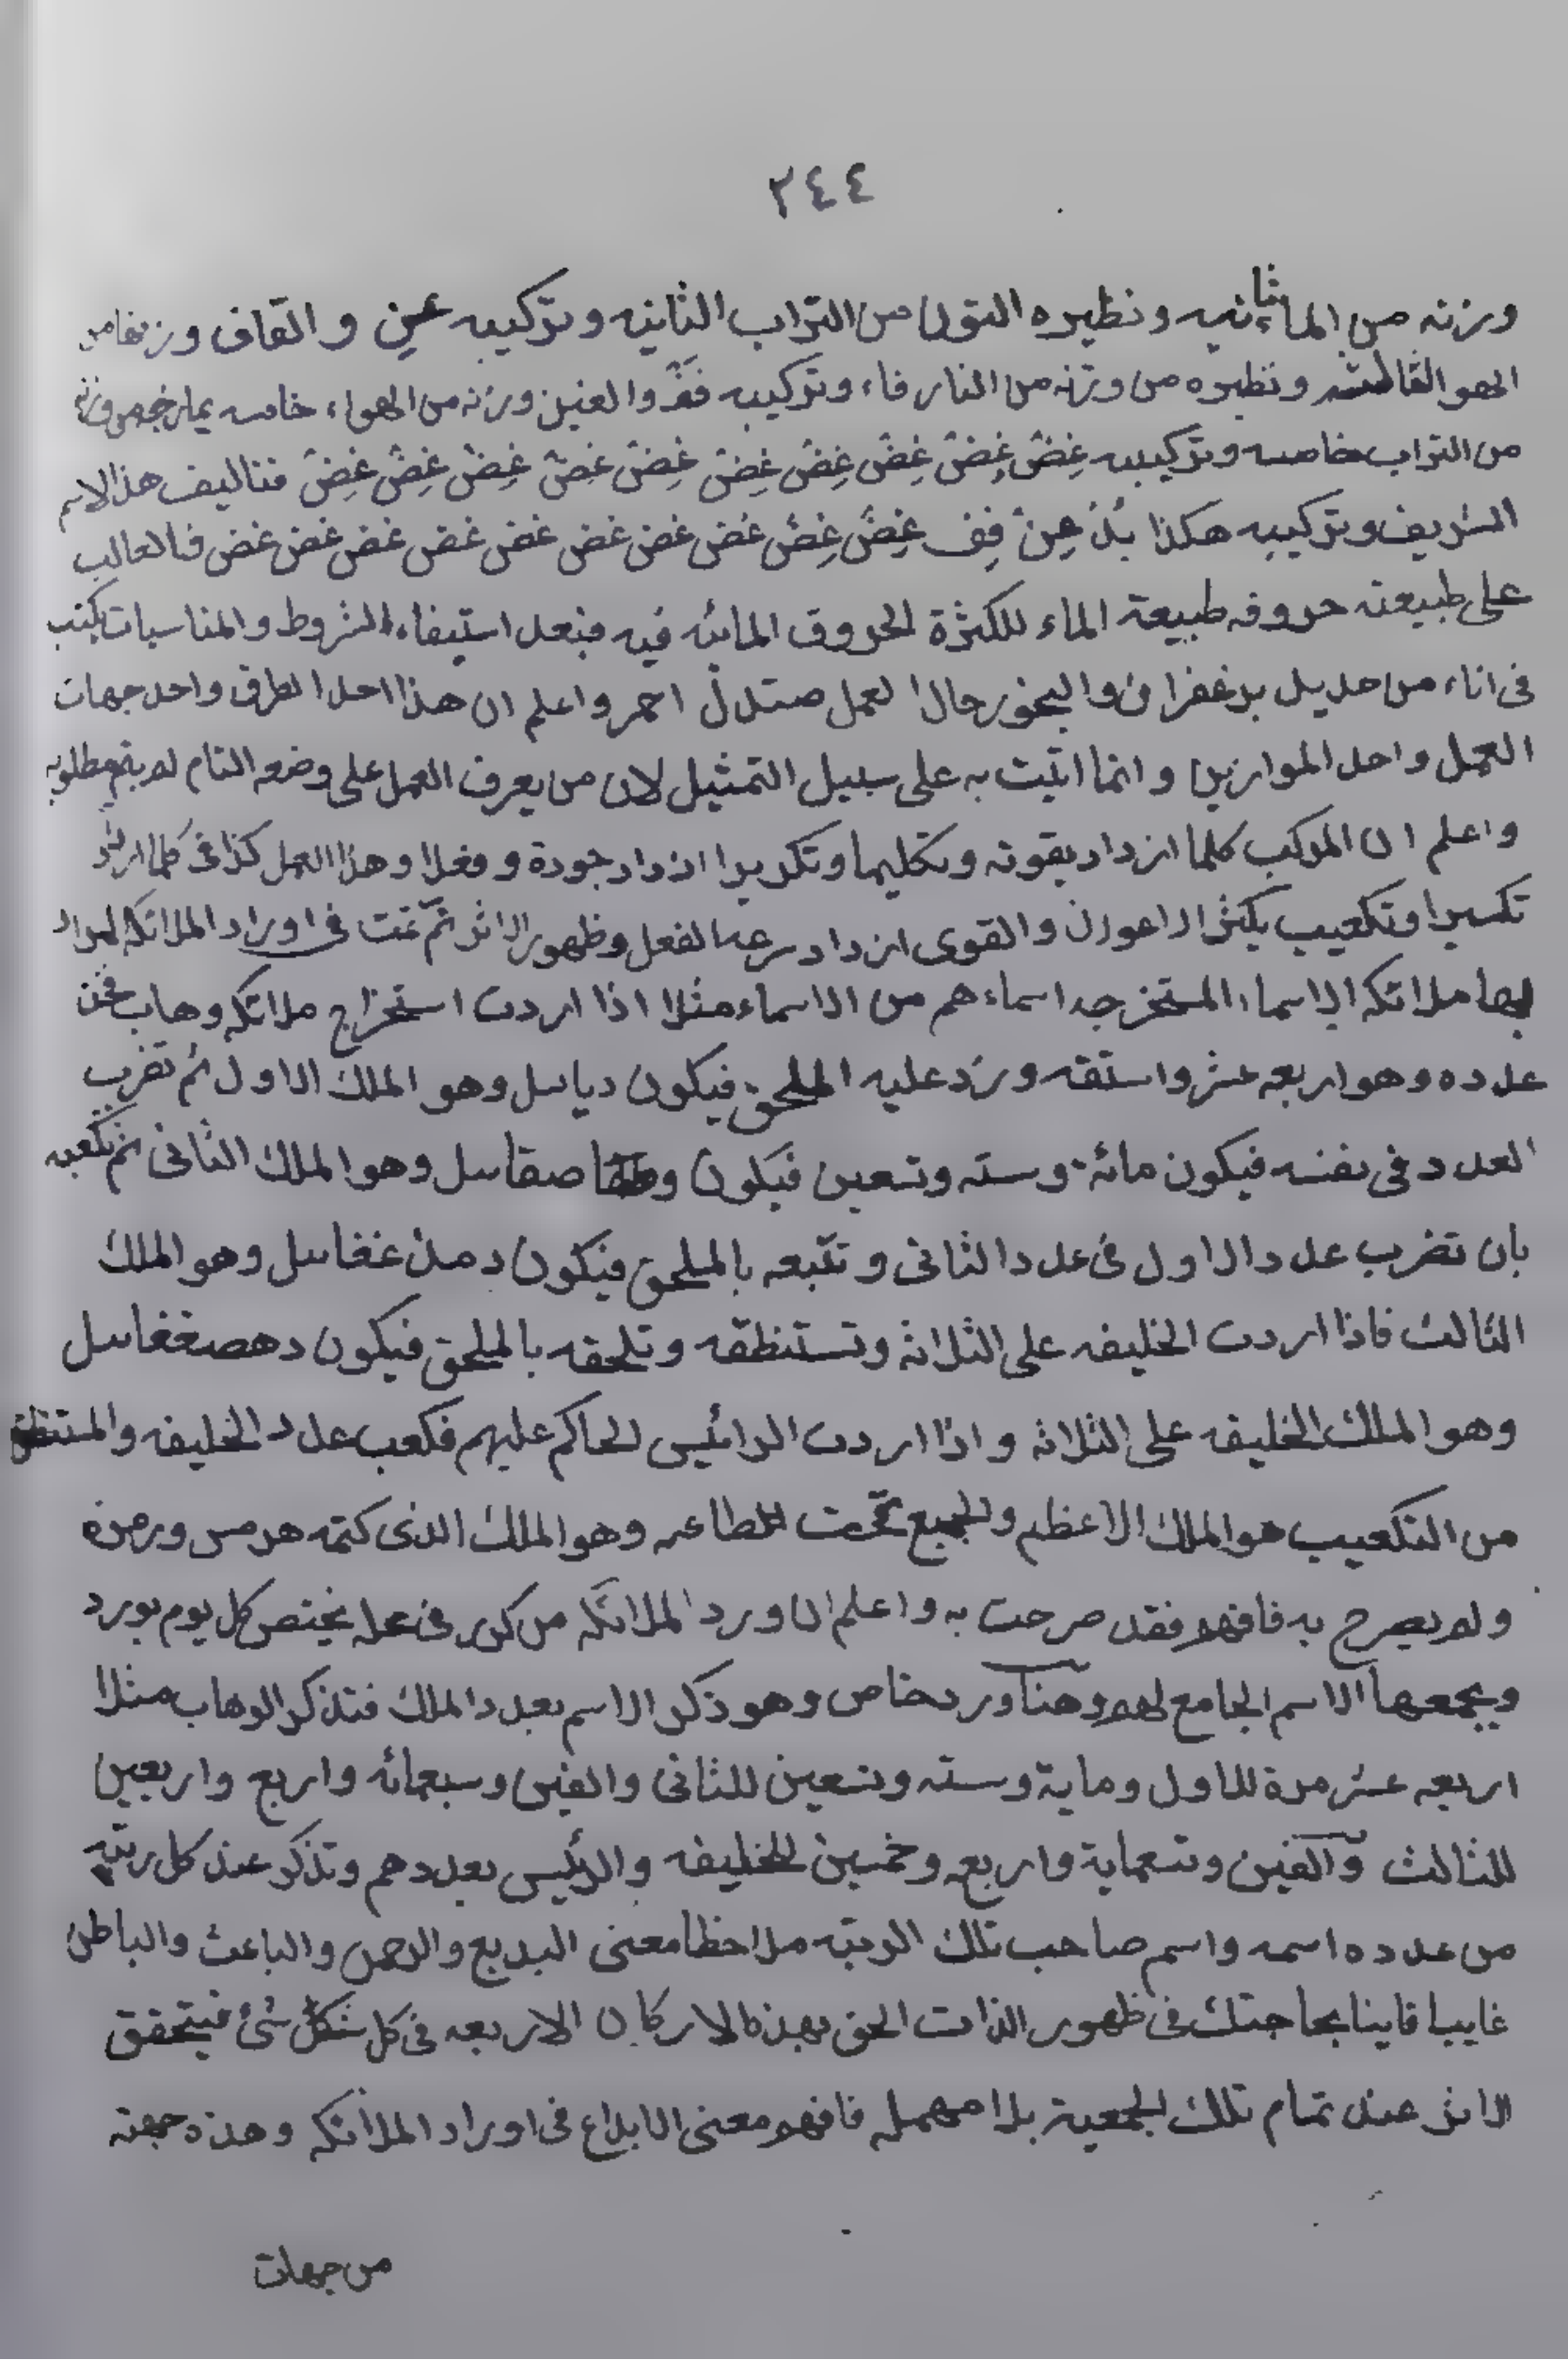 ٢٤٤
وزنه من الماء ثانيه ونظيره النون من التراب الثانيه وتركيبه عن والقاف وزنها من
الهوا الثالثه ونظيره من وزنه من النار فاء وتركيبه فق والغين وزنه من الهواء خامسه
من التراب خامسه وتركيبه غِضْ غِضْ غِضْ غِضْ غِضْ غِضْ غِضْ غِضْ غِضْ غِضْ فتاليف هذا الاسم
الشريف وتركيبه هكذا عِنْ فِق غِضْ غِضْ غض غض غض غض غض غض غض غض فالغالب
على طبيعته حروفه طبيعة الماء للكثرة الحروف المائيه فيه فبعد استيفاء الشروط والمناسبات يكتب
فى اناء من حديد بزعفران والبخور حال العمل صندل احمر واعلم ان هذا احد الطرق واحد جهات
العمل واحد الموازين وانما اتيت به على سبيل التمثيل لان من يعرف العمل على وضعه التام لم يتم مطلوبه
واعلم ان المركب كلما ازداد بقوته وتكليما وتكريرا ازداد جودة وفعلا وهذا العمل كذا فى كلما
تكسيرا وتكعيب يكثر الاعوان والقوى ازداد سرعه الفعل وظهور الاثر ثم تمت فى اوراد الملائكه المراد
بها ملائكه الاسماء المستخرجه اسماءهم من الاسماء مثلا اذا اردت استخراج ملائكه وهاب فخذ
عدده وهو اربعه عشر واستقه وزد عليه الملحق فيكون ديائيل وهو الملك الاول ثم تضرب
العدد فى نفسه فيكون مائة وسته وتسعين فيكون وصقائيل وهو الملك الثانى ثم تكعبه
بان تضرب عدد الاول فى عدد الثانى وتتبعه بالملحق فيكون دمذغغائيل وهو الملك
الثالث فاذا اردت الخليفه على الثلاثة وتستنظقه وتلحقه بالملحق فيكون دهصغغائيل
وهو الملك الخليفه على الثلاثه واذا اردت الرائيس الحاكم عليهم فكعب عدد الخليفه والمستنطق
من التكعيب هو الملك الاعظم والجميع تحت الطاعه وهو الملك الذى كتمه هرمس ورمزه
ولم يصرح به فافهم فقد صرحت به واعلم ان ورد الملائكه من يختص كل يوم بورد
ويجمعها الاسم الجامع لهم وهنا ورد خاص وهو ذكر الاسم بعدد الملك فتذكر الوهاب مثلا
اربعه عشر مرة للاول وماية وسته وتسعين للثانى والفين وسبعمائه واربع واربعين
للثالث والفين وتسعماية واربعه وخمسين للخليفه والرئيس بعددهم وتذكر عند كل رتبه
من عدده اسمه واسم صاحب تلك الرتبه ملاحظا معنى البديع والرحمن والباعث والباطن
غايبا فانيا بحاجتك فى ظهور الذات الحق بهذه الاركان الاربعه فى كل شكل شئ فيتحقق
الاثر عند تمام تلك الجمعية بلا مهمله فافهم معنى الابداع فى اوراد الملائكه وهذه جهته
من جهات